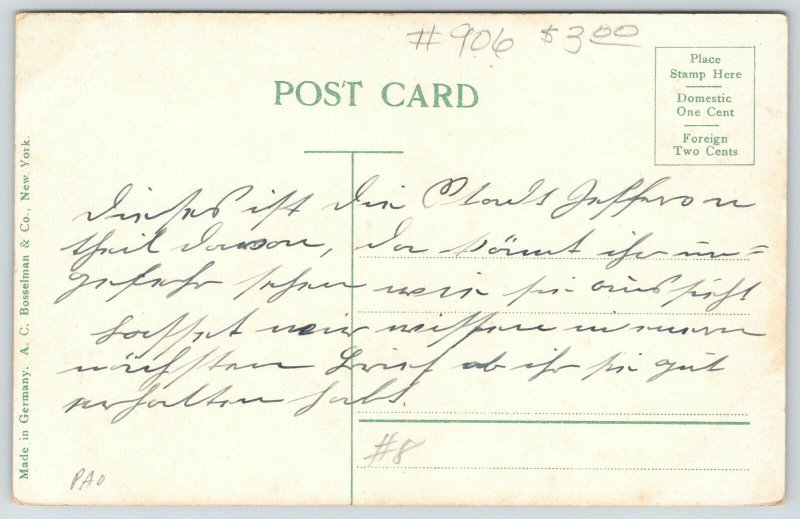 #906 $3.00
POST CARD
Place
Stamp Here
Domestic
One Cent
Foreign
Two Cents
Made in Germany. A. C. Bosselman & Co., New York.
Dieses ist die Stadt Jefferson
theil davon, da könnt ihr un=
gefehr sehen wie sie aus sieht
Lasset mir wissen in euern
nächsten Brief ob ihr sie gut
erhalten habt.
#8
PAO